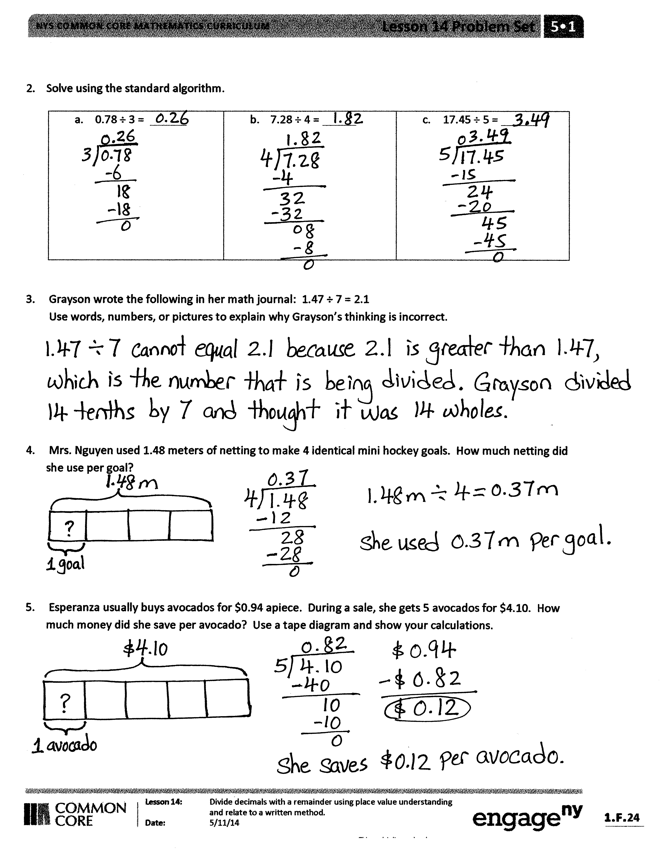 NYS COMMON CORE MATHEMATICS CURRICULUM Lesson 14 Problem Set 5•1
2. Solve using the standard algorithm.
a. 0.78 ÷ 3 = 0.26 b. 7.28 ÷ 4 = 1.82 c. 17.45 ÷ 5 = 3.49
0.26 1.82 03.49
3 0.78 4 7.28 5 17.45
-6 -4 -15
18 32 24
-18 -32 -20
0 08 45
-8 -45
0 0
3. Grayson wrote the following in her math journal: 1.47 ÷ 7 = 2.1
Use words, numbers, or pictures to explain why Grayson's thinking is incorrect.
1.47 ÷ 7 cannot equal 2.1 because 2.1 is greater than 1.47,
which is the number that is being divided. Grayson divided
14 tenths by 7 and thought it was 14 wholes.
4. Mrs. Nguyen used 1.48 meters of netting to make 4 identical mini hockey goals. How much netting did
she use per goal?
1.48m
?
1 goal
0.37
4 1.48
-12
28
-28
0
1.48m ÷ 4 = 0.37m
She used 0.37m per goal.
5. Esperanza usually buys avocados for $0.94 apiece. During a sale, she gets 5 avocados for $4.10. How
much money did she save per avocado? Use a tape diagram and show your calculations.
$4.10
?
1 avocado
0.82
5 4.10
-40
10
-10
0
$0.94
-$0.82
$0.12
She saves $0.12 per avocado.
COMMON
CORE
Lesson 14: Divide decimals with a remainder using place value understanding
and relate to a written method.
Date: 5/11/14
engage ny
1.F.24